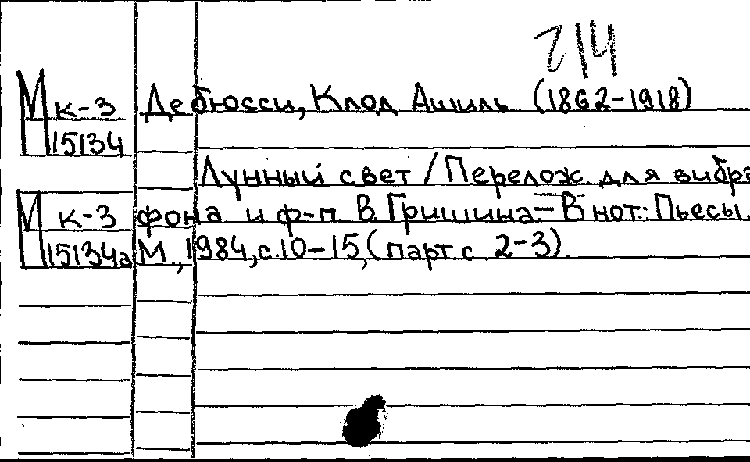 2/4
М к-3 Дебюсси, Клод Ашиль (1862-1918)
15134
Лунный свет / Перелож. для вибра
М к-3 фона и ф-п. В. Гришина. – В нот.: Пьесы.
15134а М., 1984, с. 10-15, (парт. с 2-3).